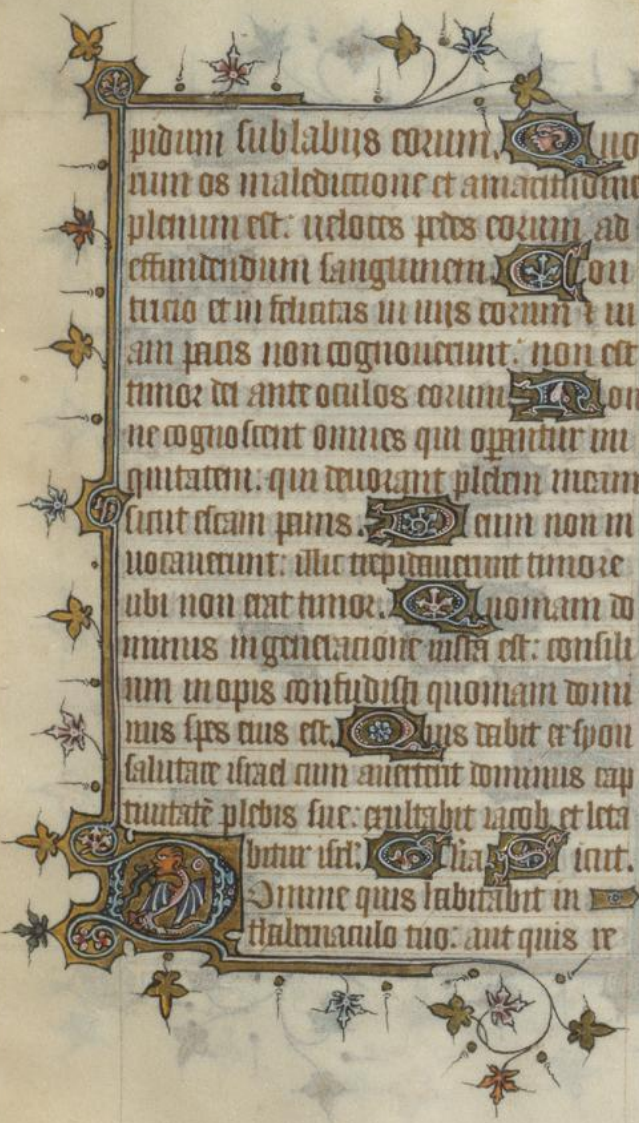 pidum sub labiis eorum. Quo
rum os maledictione et amaritudine
plenum est: ueloces pedes eorum ad
effundendum sanguinem. Con
tricio et in felicitas in uiis eorum ⁊ ui
am pacis non cognouerunt: non est
timor dei ante oculos eorum. Non
ne cognoscent omnes qui operantur ini
quitatem: qui deuorant plebem meam
sicut escam panis. Deum non in
uocauerunt: illic trepidauerunt timore
ubi non erat timor. Quoniam do
minus in generacione iusta est: consili
um inopis confudisti quoniam domi
nus spes eius est. Quis dabit ex syon
salutare israel cum auerterit dominus cap
tiuitatē plebis sue: exultabit iacob et leta
bitur isrl. Glia Sicut.
Domine quis habitabit in
thabernaculo tuo: aut quis re